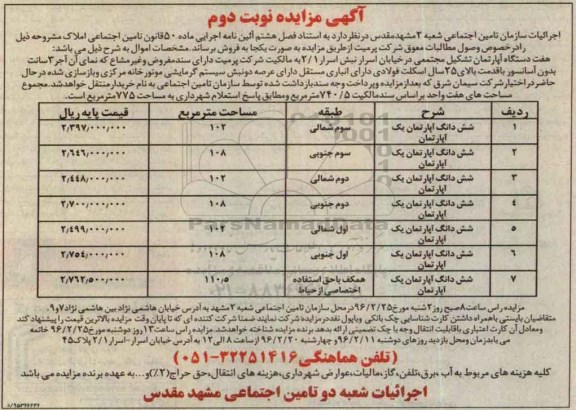 آگهی مزایده نوبت دوم
اجرائیات سازمان تامین اجتماعی شعبه ۲ مشهدمقدس درنظردارد به استناد فصل هشتم آئین نامه اجرایی ماده ۵۰ قانون تامین اجتماعی املاک مشروحه ذیل
رادرخصوص وصول مطالبات معوق شرکت پرمیت ازطریق مزایده به صورت یکجا به فروش برساند. مشخصات اموال به شرح ذیل می باشد:
هفت دستگاه آپارتمان تشکیل مجتمعی درخیابان اسرار نبش اسرار ۲/۱ به مالکیت شرکت پرمیت دارای سندمفروض وغیرمشاع که نمای آن آجر ۳ سانت
بدون آسانسور باقدمت بالای ۲۵ سال اسکلت فولادی دارای انباری مستقل دارای عرصه دونبش سیستم گرمایشی موتورخانه مرکزی وبازسازی شده درحال
حاضر در اختیار شرکت سیمان شرق که بعدازمزایده وپرداخت وجه سندبازداشت شده توسط سازمان تامین اجتماعی به نام خریدار منتقل خواهدشد. مجموع
مساحت های هفت واحد براساس سندمالکیت ۷۴۰/۵ مترمربع ومطابق پاسخ استعلام شهرداری به مساحت ۷۷۵ مترمربع است.
ردیف شرح طبقه مساحت مترمربع قیمت پایه ریال
۱ شش دانگ آپارتمان یک آپارتمان سوم شمالی ۱۰۲ ۲/۳۹۷/۰۰۰/۰۰۰
۲ شش دانگ آپارتمان یک آپارتمان سوم جنوبی ۱۰۸ ۲/۶۴۶/۰۰۰/۰۰۰
۳ شش دانگ آپارتمان یک آپارتمان دوم شمالی ۱۰۲ ۲/۴۴۸/۰۰۰/۰۰۰
۴ شش دانگ آپارتمان یک آپارتمان دوم جنوبی ۱۰۸ ۲/۷۰۰/۰۰۰/۰۰۰
۵ شش دانگ آپارتمان یک آپارتمان اول شمالی ۱۰۲ ۲/۴۹۹/۰۰۰/۰۰۰
۶ شش دانگ آپارتمان یک آپارتمان اول جنوبی ۱۰۸ ۲/۷۵۴/۰۰۰/۰۰۰
۷ شش دانگ آپارتمان یک آپارتمان همکف باحق استفاده اختصاصی ازحیاط ۱۱۰/۵ ۲/۷۶۲/۵۰۰/۰۰۰
مزایده راس ساعت ۸ صبح روز ۲ شنبه مورخ ۹۶/۲/۲۵ درمحل سازمان تامین اجتماعی شعبه ۲ مشهد به آدرس خیابان هاشمی نژاد بین هاشمی نژاد ۷ و ۹.
متقاضیان بایستی باهمراه داشتن کارت شناسایی چک بانکی وپاپول نقددرمزایده شرکت نمایند ضمنا شرکت کننده ای که تا پایان وقت مزایده بالاترین قیمت را پیشنهاد کند
ومعادل آن کارت اعتباری باقابلیت انتقال وجه یا چک تضمینی ارائه بدهد برنده مزایده شناخته خواهدشد. مزایده راس ساعت ۱۳ روز دوشنبه مورخ ۹۶/۲/۲۵ خاتمه
می یابدزمان ومحل بازدید روزهای دوشنبه ۹۶/۲/۱۱ وچهارشنبه ۹۶/۲/۲۰ ازساعت ۸ الی ۱۲ به آدرس خیابان اسرار-اسرار ۲/۱ پلاک ۴۵
(تلفن هماهنگی ۳۲۲۵۱۴۱۶-۰۵۱)
کلیه هزینه های مربوط به آب، برق، تلفن، گاز، مالیات، عوارض شهرداری، هزینه های انتقال، حق حراج (۲٪) و...به عهده برنده مزایده می باشد
اجرائیات شعبه دو تامین اجتماعی مشهد مقدس
ParsNamadData